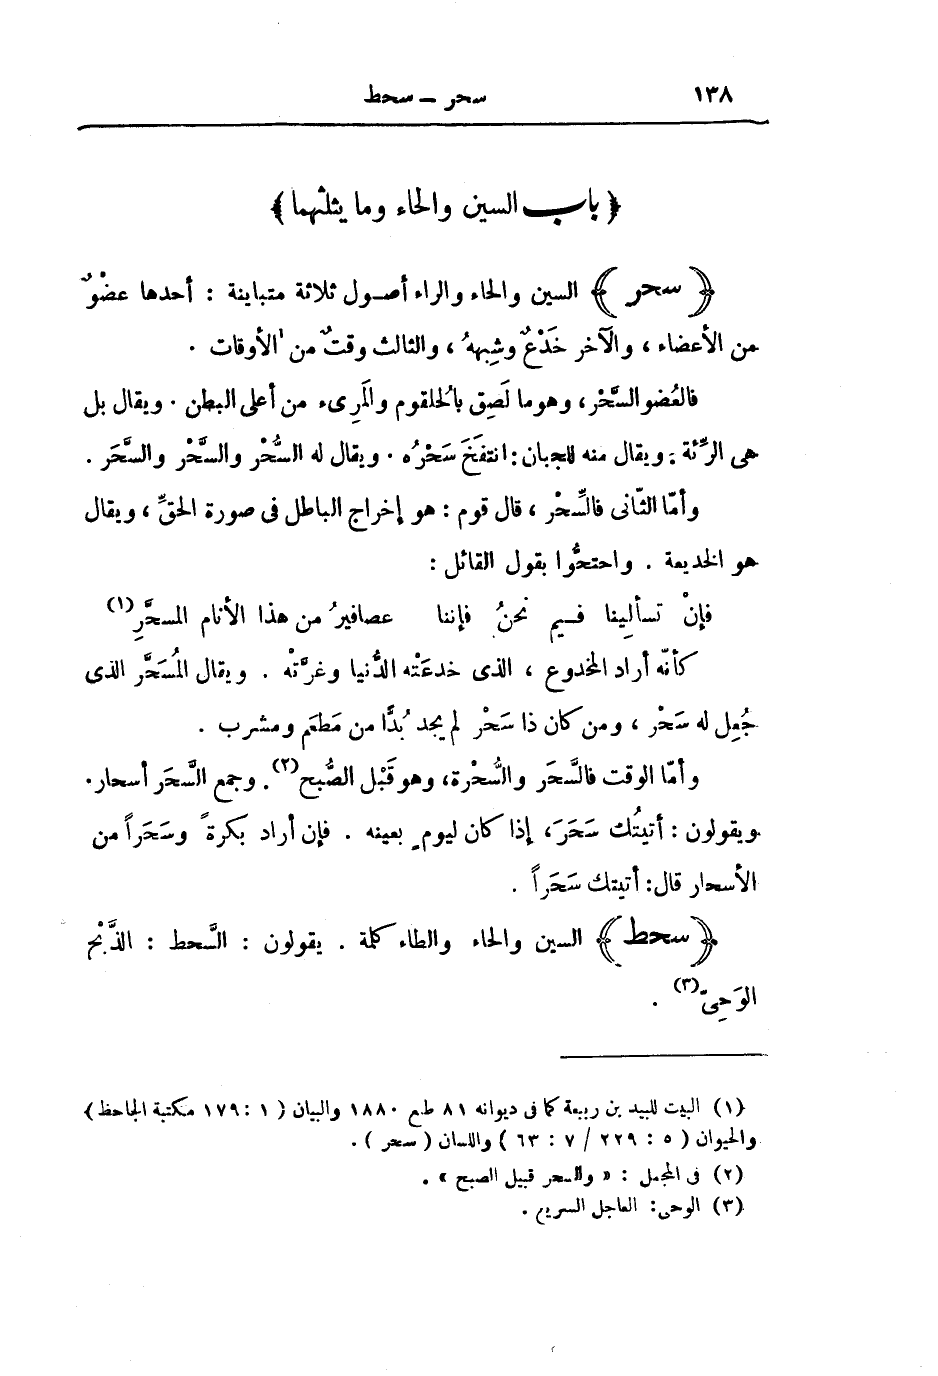 ١٣٨ سحر — سحط
﴿ باب السين والحاء وما يثلثهما ﴾
﴿ سحر ﴾ السين والحاء والراء أصول ثلاثة متباينة : أحدها عضْوٌ
من الأعضاء ، والآخر خَدْعٌ وشِبههُ ، والثالث وقتٌ من الأوقات .
فالعُضو السَّحْر ، وهو ما لَصِق بالحُلقوم والمَرِىء من أعلى البطن . ويقال بل
هى الرِّئة . ويقال منه للجبان : انتفَخَ سَحْرُه . ويقال له السُّحْر والسَّحْر والسَّحَر .
وأمّا الثّانى فالسِّحْر ، قال قوم : هو إخراج الباطل فى صورة الحقِّ ، ويقال
هو الخديعة . واحتجُّوا بقول القائل :
فإنْ تسألِينا فــيم نحنُ فإننا عصافيرُ من هذا الأنام المسحَّرِ (١)
كأنّه أراد المخدوع ، الذى خدعَتْه الدُّنيا وغرَّتْه . ويقال المُسَحَّر الذى
جُعِل له سَحْر ، ومن كان ذا سَحْر لم يجد بُدًّا من مَطعَم ومشرب .
وأمّا الوقت فالسَّحَر والسُّحْرة ، وهو قَبْل الصُّبح (٢) . وجمع السَّحَر أسحار .
ويقولون : أتيتُك سَحَرَ ، إذا كان ليومٍ بعينه . فإن أراد بكرةً وسَحَراً من
الأسحار قال : أتيتك سَحَراً .
﴿ سحط ﴾ السين والحاء والطاء كلمة . يقولون : السَّحط : الذَّبْح
الوَحِىّ (٣) .
(١) البيت للبيد بن ربيعة كما فى ديوانه ٨١ طبع ١٨٨٠ والبيان ( ١ : ١٧٩ مكتبة الجاحظ )
والحيوان ( ٥ : ٢٢٩ / ٧ : ٦٣ ) واللسان ( سحر ) .
(٢) فى المجمل : « والسحر قبيل الصبح » .
(٣) الوحى : العاجل السريع .